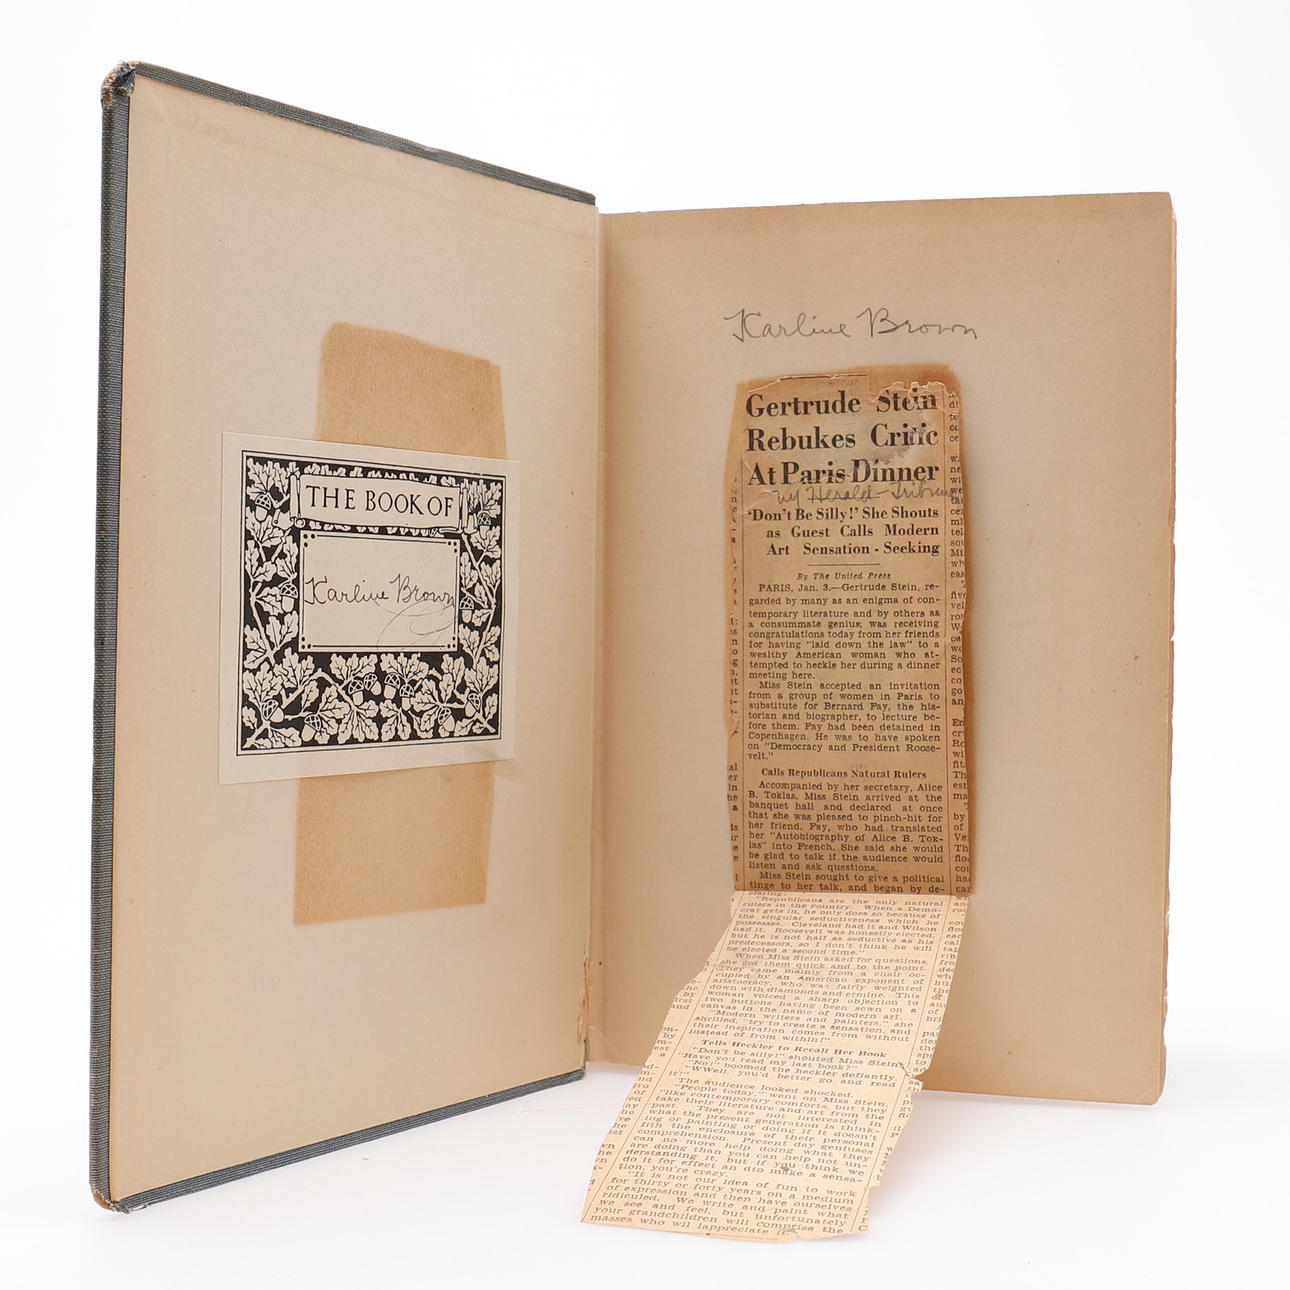 THE BOOK OF
Karline Brown
Karline Brown
Gertrude Stein
Rebukes Critic
At Paris Dinner
NY Herald-Tribune
'Don't Be Silly!' She Shouts
as Guest Calls Modern
Art Sensation - Seeking
By The United Press
PARIS, Jan. 3.—Gertrude Stein, re-
garded by many as an enigma of con-
temporary literature and by others as
a consummate genius, was receiving
congratulations today from her friends
for having "laid down the law" to a
wealthy American woman who at-
tempted to heckle her during a dinner
meeting here.
Miss Stein accepted an invitation
from a group of women in Paris to
substitute for Bernard Fay, the his-
torian and biographer, to lecture be-
fore them. Fay had been detained in
Copenhagen. He was to have spoken
on "Democracy and President Roose-
velt."
Calls Republicans Natural Rulers
Accompanied by her secretary, Alice
B. Toklas, Miss Stein arrived at the
banquet hall and declared at once
that she was pleased to pinch-hit for
her friend, Fay, who had translated
her "Autobiography of Alice B. Tok-
las" into French. She said she would
be glad to talk if the audience would
listen and ask questions.
Miss Stein sought to give a political
tinge to her talk, and began by de-
claring:
"Republicans are the only natural
rulers in the country. When a Demo-
crat gets in, he only does so because of
the singular seductiveness which he
possesses. Cleveland had it and Wilson
had it. Roosevelt was honestly elected,
but he is not half as seductive as his
predecessors, so I don't think he will
be elected a second time."
When Miss Stein asked for questions,
she got them quick and to the point.
They came mainly from a chair oc-
cupied by an American exponent of
aristocracy, who was fairly weighted
down with diamonds and ermine. This
woman voiced a sharp objection to
two buttons having been sewn on a
canvas in the name of modern art.
"Modern writers and painters," she
shrilled, "try to create a sensation, and
their inspiration comes from without
instead of from within!"
Tells Heckler to Recall Her Book
"Don't be silly!" shouted Miss Stein.
"Have you read my last book?"
"No!" boomed the heckler defiantly.
"WWell, you'd better go and read
it!"
The audience looked shocked.
"People today," went on Miss Stein,
"like contemporary comforts, but they
take their literature and art from the
past. They are not interested in
what the present generation is think-
ing or painting or doing if it doesn't
fith the enclosure of their personal
comprehension. Present day geniuses
can no more help doing what they
are doing than you can help not un-
derstanding it, but if you think we
do it for effect an dto make a sensa-
tion, you're crazy.
"It is not our idea of fun to work
for thirty or forty years on a medium
of expression and then have ourselves
ridiculed. We write and paint what
we see and feel, but unfortunately
your grandchildren will comprise the
masses who wil lappreciate it."